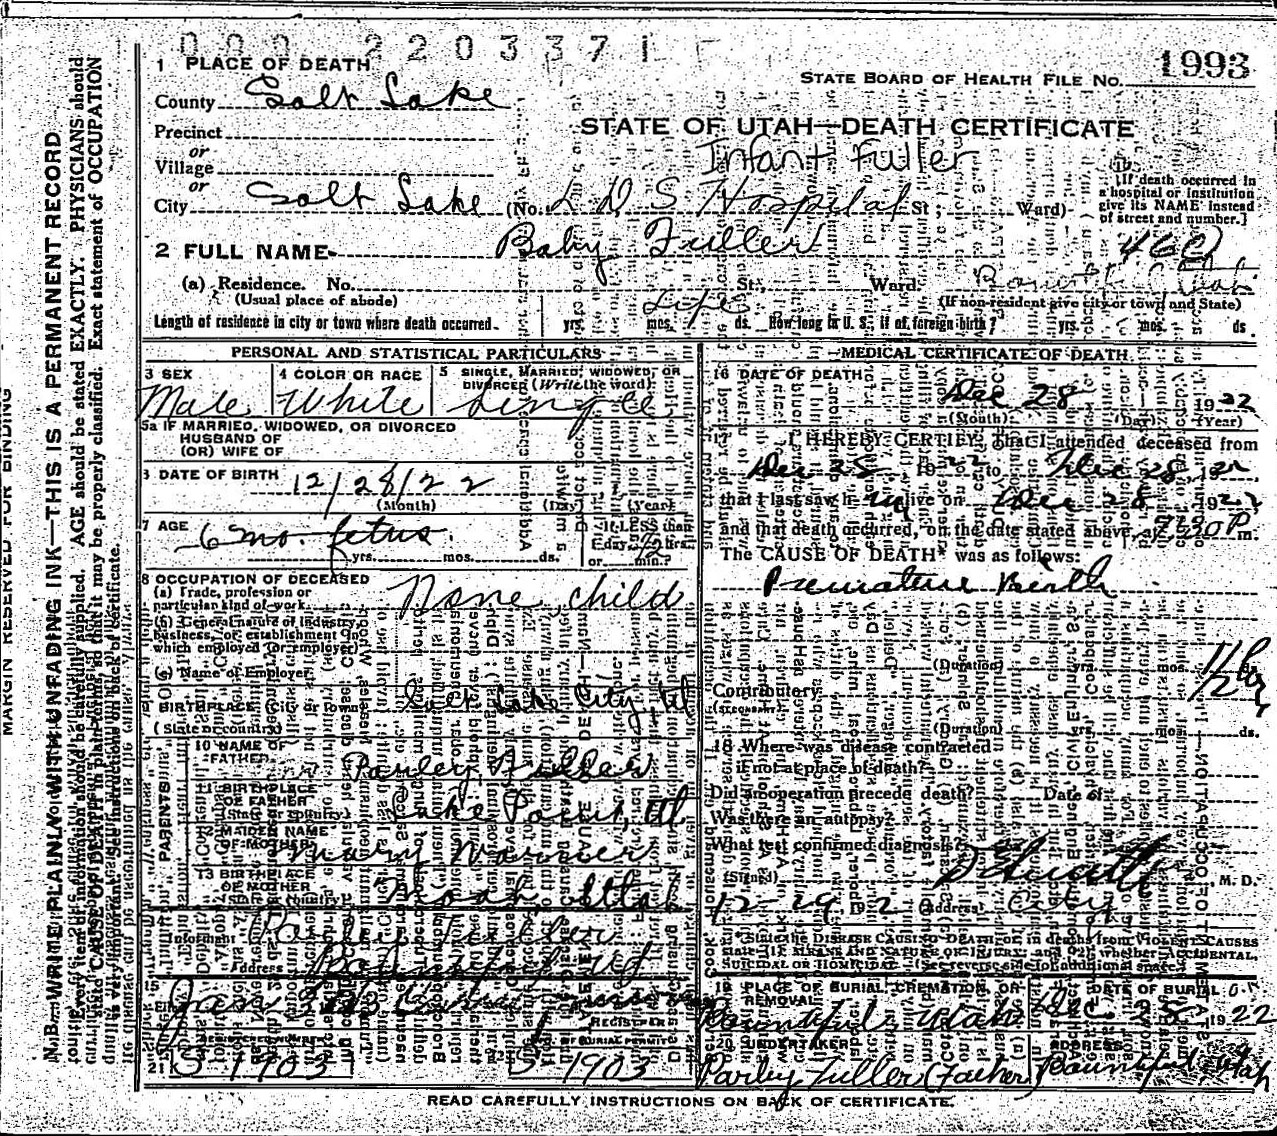 000 2203371
1 PLACE OF DEATH
STATE BOARD OF HEALTH FILE NO. 1993
County Salt Lake
STATE OF UTAH—DEATH CERTIFICATE
Precinct
or
Infant Fuller
Village
or
City Salt Lake (No. L D S Hospital St. Ward)
[If death occurred in
a hospital or institution
give its NAME instead
of street and number.]
2 FULL NAME Baby Fuller
460
(a) Residence. No. St., Ward. Bountiful Utah
(Usual place of abode)
(If non-resident give city or town and State)
Length of residence in city or town where death occurred. yrs. mos. Life ds. How long in U. S., if of foreign birth? yrs. mos. ds.
PERSONAL AND STATISTICAL PARTICULARS
3 SEX
Male
4 COLOR OR RACE
White
5 SINGLE, MARRIED, WIDOWED, OR
DIVORCED (Write the word)
Single
5a IF MARRIED, WIDOWED, OR DIVORCED
HUSBAND OF
(OR) WIFE OF
6 DATE OF BIRTH 12/28/22
(Month) (Day) (Year)
7 AGE
6 mo. fetus.
yrs. mos. ds.
If LESS than
or min.?
8 OCCUPATION OF DECEASED
(a) Trade, profession or
particular kind of work
None, child
(b) General nature of industry,
business, or establishment in
which employed (or employer)
(c) Name of Employer
9 BIRTHPLACE (City or town) Salt Lake City, Ut
(State or country)
PARENTS
10 NAME OF
FATHER
Parley Fuller
11 BIRTHPLACE
OF FATHER
(State or country)
12 MAIDEN NAME
OF MOTHER
Mary Warner
13 BIRTHPLACE
OF MOTHER
(State or country)
Moab Utah
14
Informant Parley Fuller
Address Bountiful Ut
15
Jan
REGISTRAR
BURIAL PERMIT
21 S-1903
S-1903
MEDICAL CERTIFICATE OF DEATH
16 DATE OF DEATH
Dec 28 1922
(Month) (Day) (Year)
17 I HEREBY CERTIFY, That I attended deceased from
Dec 28 1922, to Dec 28, 1922
that I last saw h im alive on Dec 28 1922
and that death occurred, on the date stated above, at 7:30 P. m.
The CAUSE OF DEATH* was as follows:
Premature Birth
(Duration) yrs. mos. ds.
Contributory
(SECONDARY)
(Duration) yrs. mos. ds.
18 Where was disease contracted
if not at place of death?
Did an operation precede death? Date of
Was there an autopsy?
What test confirmed diagnosis?
(Signed) M. D.
12-29 192 (Address) City
* State the DISEASE CAUSING DEATH, or, in deaths from VIOLENT CAUSES
state (1) MEANS AND NATURE OF INJURY, and (2) whether ACCIDENTAL,
SUICIDAL OR HOMICIDAL. (See reverse side for additional space.)
19 PLACE OF BURIAL, CREMATION, OR
REMOVAL
Bountiful Utah
DATE OF BURIAL
Dec. 28 1922
20 UNDERTAKER
Parley Fuller (Father)
ADDRESS
Bountiful, Utah
READ CAREFULLY INSTRUCTIONS ON BACK OF CERTIFICATE.
MARGIN RESERVED FOR BINDING
N. B.—WRITE PLAINLY, WITH UNFADING INK—THIS IS A PERMANENT RECORD
Every item of information should be carefully supplied. AGE should be stated EXACTLY. PHYSICIANS should
state CAUSE OF DEATH in plain terms, so that it may be properly classified. Exact statement of OCCUPATION
is very important. See instructions on back of certificate.